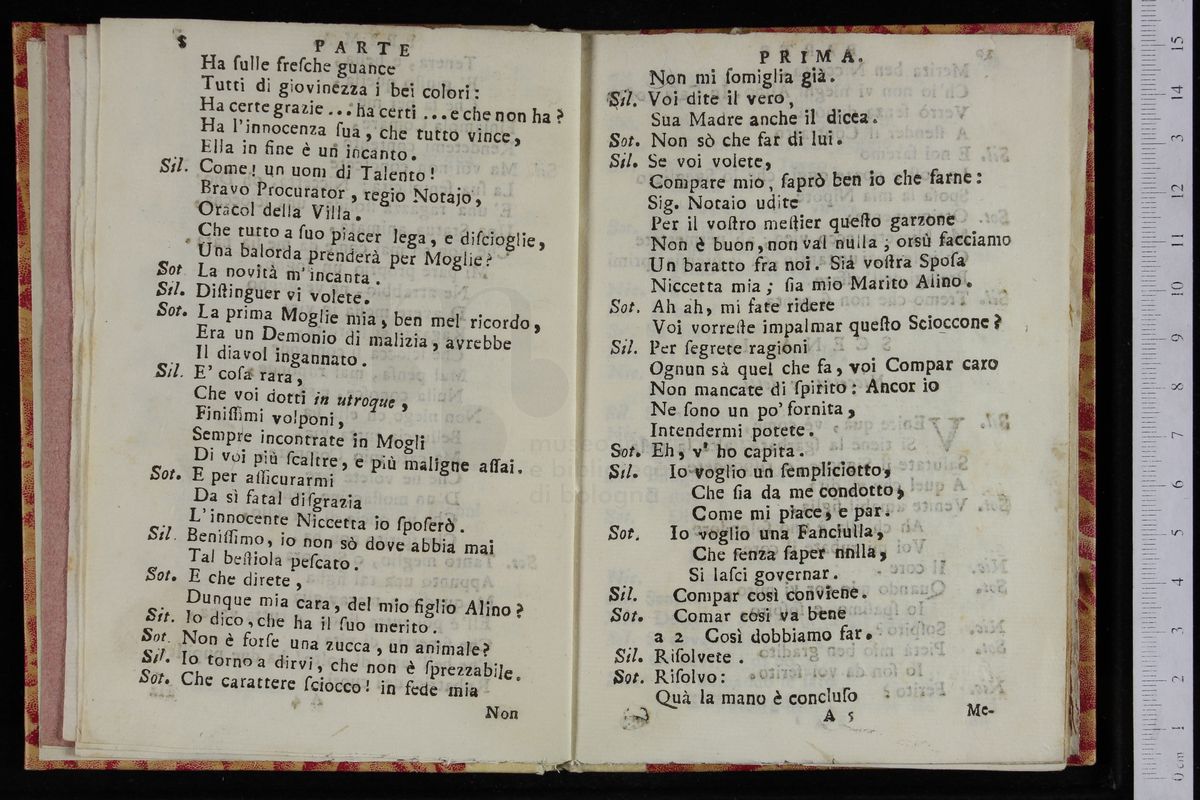 8 PARTE
Ha ſulle freſche guance
Tutti di giovinezza i bei colori:
Ha certe grazie ... ha certi ... e che non ha?
Ha l'innocenza ſua, che tutto vince,
Ella in fine è un incanto.
Sil. Come! un uom di Talento!
Bravo Procurator, regio Notajo,
Oracol della Villa.
Che tutto a ſuo piacer lega, e diſcioglie,
Una balorda prenderà per Moglie?
Sot La novità m'incanta.
Sil. Diſtinguer vi volete.
Sot. La prima Moglie mia, ben mel ricordo,
Era un Demonio di malizia, avrebbe
Il diavol ingannato.
Sil. E' coſa rara,
Che voi dotti in utroque,
Finiſſimi volponi,
Sempre incontrate in Mogli
Di voi più ſcaltre, e più maligne aſſai.
Sot. E per aſſicurarmi
Da sì fatal diſgrazia
L'innocente Niccetta io ſpoſerò.
Sil. Beniſſimo, io non sò dove abbia mai
Tal beſtiola peſcato.
Sot. E che direte,
Dunque mia cara, del mio figlio Alino?
Sit. Io dico, che ha il ſuo merito.
Sot. Non è forſe una zucca, un animale?
Sil. Io torno a dirvi, che non è ſprezzabile.
Sot. Che carattere ſciocco! in fede mia
Non
PRIMA.
Non mi ſomiglia già.
Sil. Voi dite il vero,
Sua Madre anche il dicea.
Sot. Non sò che far di lui.
Sil. Se voi volete,
Compare mio, ſaprò ben io che farne:
Sig. Notaio udite
Per il voſtro meſtier queſto garzone
Non è buon, non val nulla; orsù facciamo
Un baratto fra noi. Sia voſtra Spoſa
Niccetta mia; ſia mio Marito Alino.
Sot. Ah ah, mi fate ridere
Voi vorreſte impalmar queſto Scioccone?
Sil. Per ſegrete ragioni
Ognun sà quel che fa, voi Compar caro
Non mancate di ſpirito: Ancor io
Ne ſono un po' fornita,
Intendermi potete.
Sot. Eh, v' ho capita.
Sil. Io voglio un ſempliciotto,
Che ſia da me condotto,
Come mi piace, e par.
Sot. Io voglio una Fanciulla,
Che ſenza ſaper nnlla,
Si laſci governar.
Sil. Compar così conviene.
Sot. Comar così va bene
a 2 Così dobbiamo far.
Sil. Riſolvete.
Sot. Riſolvo:
Quà la mano è concluſo
A 5 Me-